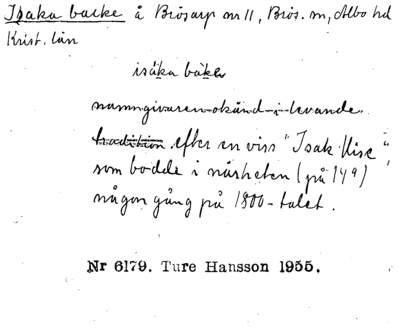 Isaka backe å Brösarp nr 11, Brös. sn, Albo hd
Krist. län
isáka bákər
namngivaren okänd i levande
tradition efter en viss "Isak Kise",
som bodde i närheten (på 14⁹)
någon gång på 1800-talet.
Nr 6179. Ture Hansson 1955.